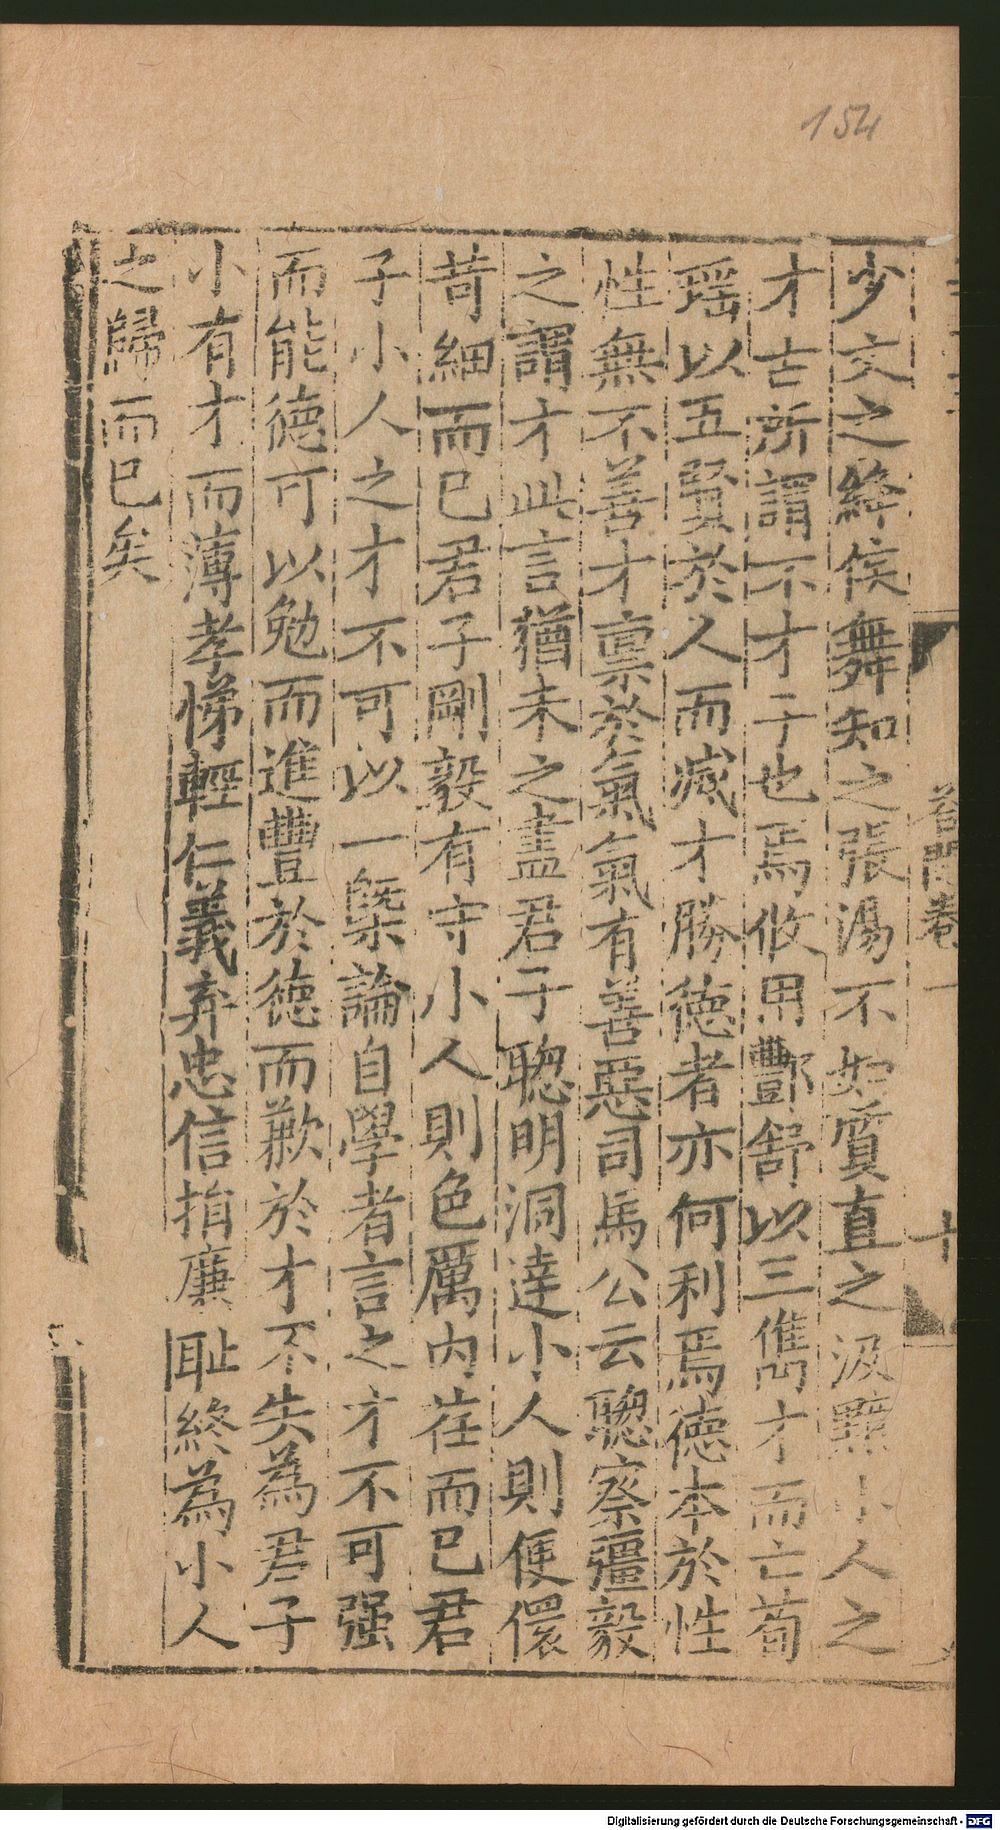 154
少文之絳侯舞知之張湯不如質直之汲黯小人之
才古所謂不才子也焉攸用酆舒以三儁才而亡荀
瑶以五賢於人而滅才勝德者亦何利焉德本於性
性無不善才禀於氣氣有善惡司馬公云聦察彊毅
之謂才此言猶未之盡君子聦明洞達小人則便儇
苛細而已君子剛毅有守小人則色厲内荏而已君
子小人之才不可以一槩論自學者言之才不可强
而能德可以勉而進豐於德而歉於才不失為君子
小有才而薄孝悌輕仁義弃忠信捐廉恥終為小人
之歸而已矣
荅問卷一
十
Digitalisierung gefördert durch die Deutsche Forschungsgemeinschaft - DFG